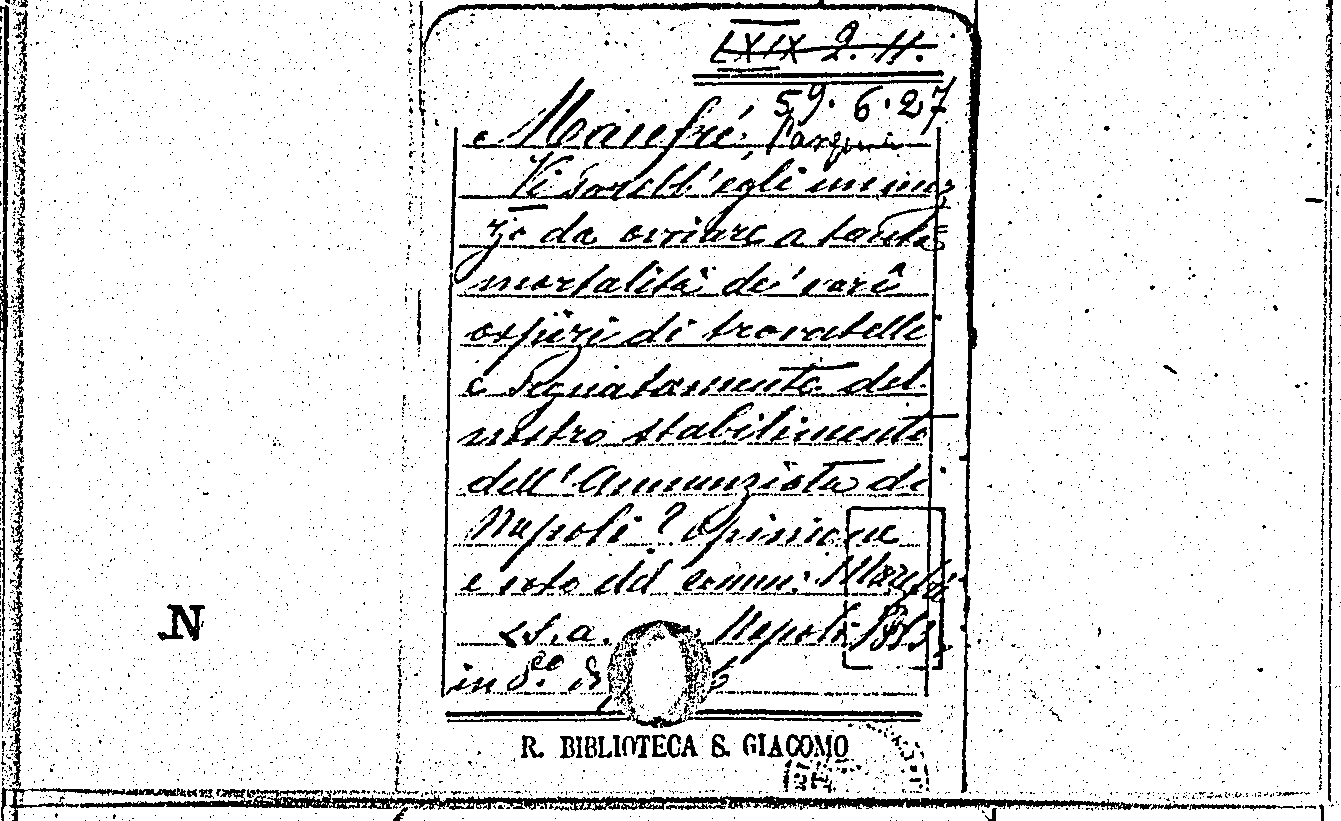 LXIX 2. 11.
59. 6. 27
Manfré, Pasquale
Vi sarebb'egli un mez
zo da ovviare a tanta
mortalità dei varî
ospizi di trovatelli
e segnatamente del
nostro stabilimento
dell'Annunziata di
Napoli? Opinione
e voto del comm.
s.s.a. Napoli
in 8.º
R. BIBLIOTECA S. GIACOMO
N.